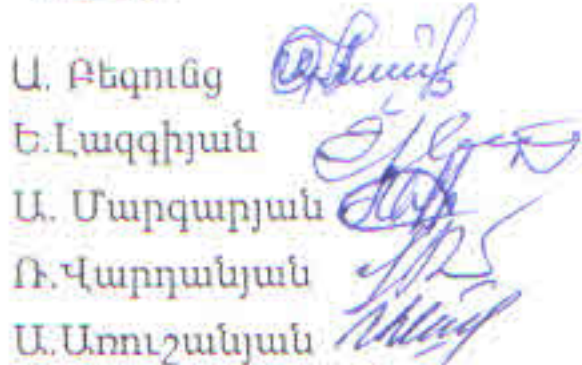 Ա. Բեգունց
Ե.Լազգիյան
Ա. Մարգարյան
Ռ.Վարդանյան
Ա.Առուշանյան